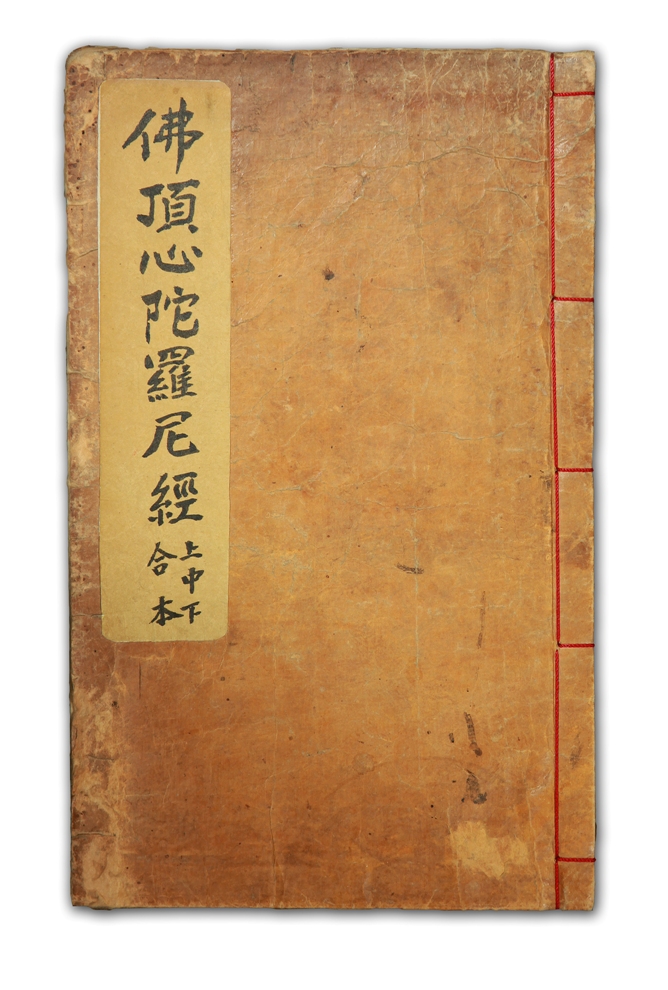 佛頂心陀羅尼經
上中下
合本